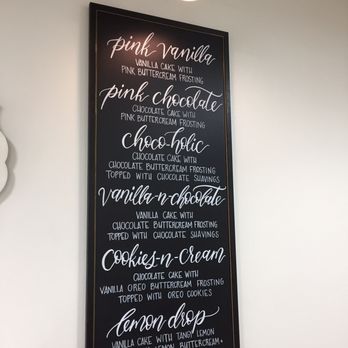 pink vanilla
VANILLA CAKE WITH
PINK BUTTERCREAM FROSTING
pink chocolate
CHOCOLATE CAKE WITH
PINK BUTTERCREAM FROSTING
choco-holic
CHOCOLATE CAKE WITH
CHOCOLATE BUTTERCREAM FROSTING
TOPPED WITH CHOCOLATE SHAVINGS
vanilla-n-chocolate
VANILLA CAKE WITH
CHOCOLATE BUTTERCREAM FROSTING
TOPPED WITH CHOCOLATE SHAVINGS
Cookies-n-Cream
CHOCOLATE CAKE WITH
VANILLA OREO BUTTERCREAM FROSTING
TOPPED WITH OREO COOKIES
lemon drop
VANILLA CAKE WITH TANGY LEMON
LEMON BUTTERCREAM +